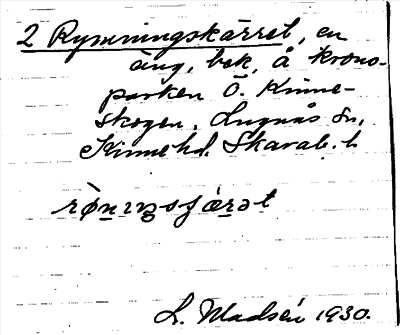 2 Rymningskärret, en
äng, bek, å krono-
parken Ö. Kinne-
skogen, Lugnås sn,
Kinne hd. Skarab. l.
L. Madsén 1930.